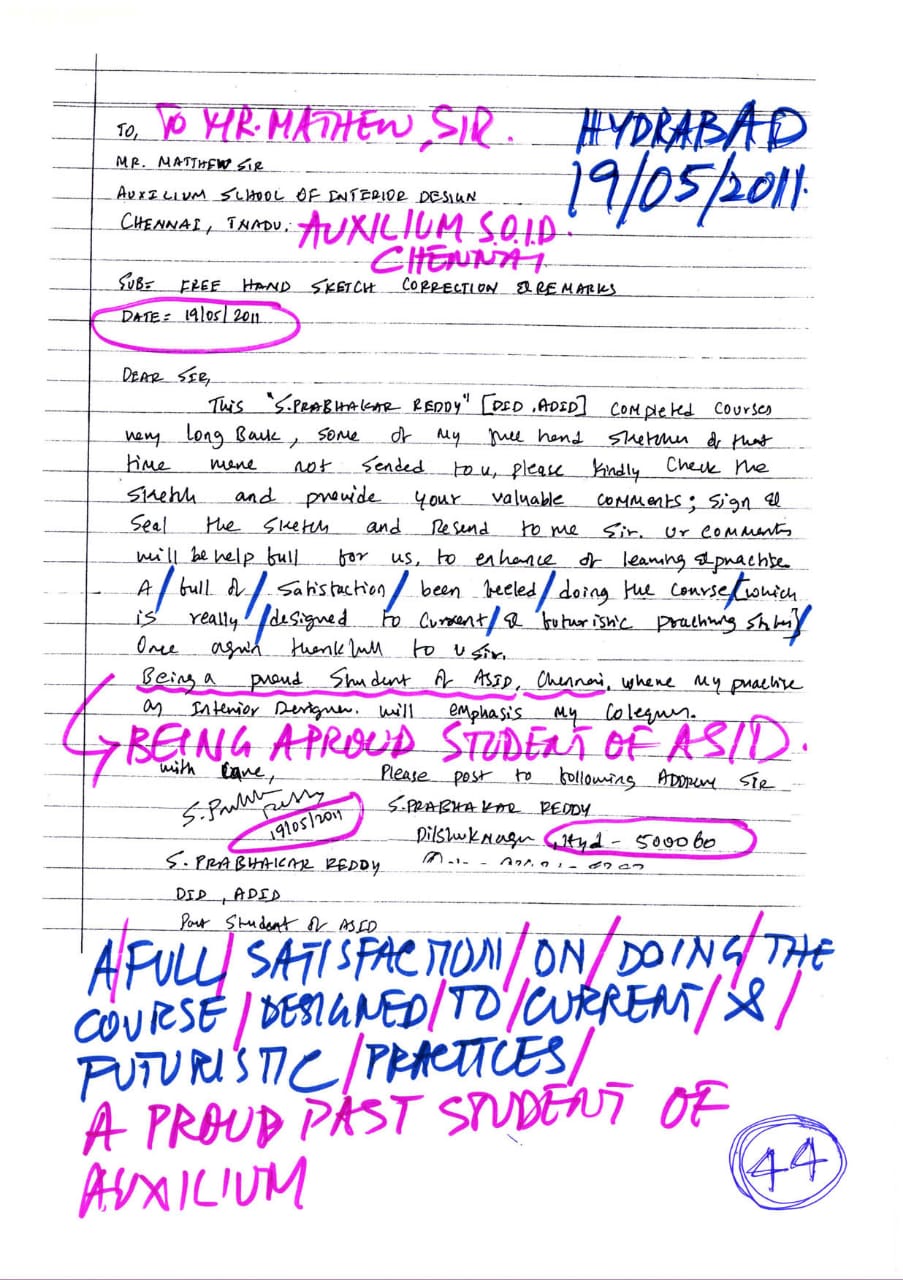 TO, TO MR. MATHEW SIR. HYDRABAD
MR. MATTHEW SIR
19/05/2011.
AUXILIUM SCHOOL OF INTERIOR DESIGN
CHENNAI, TNADU. AUXILIUM S.O.I.D.
CHENNAI
SUB= FREE HAND SKETCH CORRECTION & REMARKS
DATE= 19/05/2011
DEAR SIR,
This "S.PRABHAKAR REDDY" [DID, ADID] completed courses
very long Back, some of my free hand sketches of that
time were not sended to u, please kindly check the
sketch and provide your valuable comments; sign &
seal the sketch and Resend to me sir. ur comments
will be help full for us, to enhance of learning & practise
A / full of / satisfaction / been feeled / doing the course / [which
is really / designed to current / & futuristic
Once again thankfull to u sir.
Being a proud student of ASID, Chennai, where my practise
as Interior Designer. will emphasis my
BEING A PROUD STUDENT OF ASID.
with Please post to following ADDRESS SIR
19/05/2011 S.PRABHAKAR REDDY
Dilshuknagar, Hyd - 500060
S. PRABHAKAR REDDY
DID, ADID
Past Student of ASID
A/FULL/ SATISFACTION/ON/DOING/THE
COURSE/DESIGNED/TO/CURRENT/&/
FUTURISTIC/PRACTICES/
A PROUD PAST STUDENT OF
AUXILIUM
44